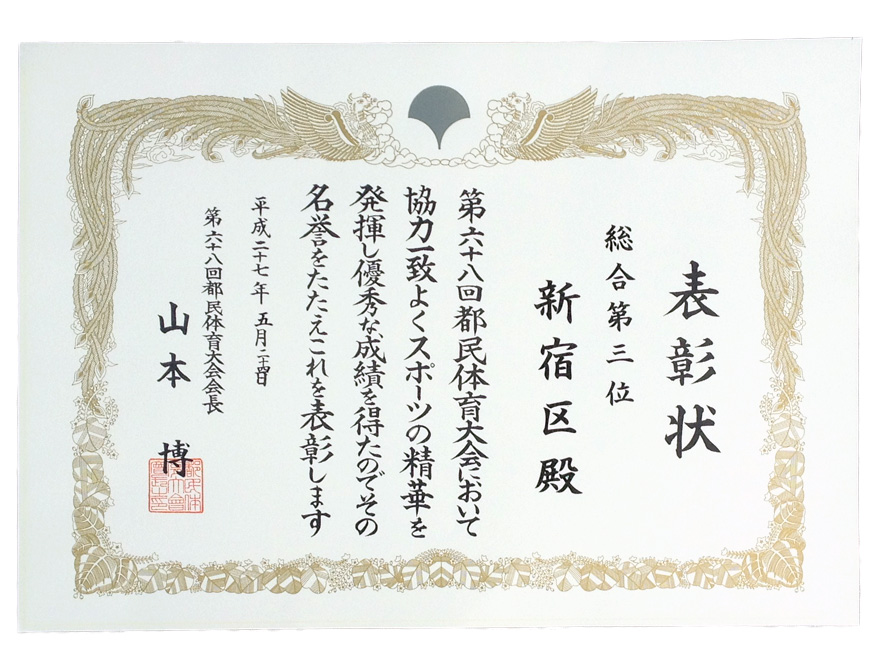 表彰状
総合第三位
新宿区殿
第六十八回都民体育大会において
協力一致よくスポーツの精華を
発揮し優秀な成績を得たのでその
名誉をたたえこれを表彰します
平成二十七年五月二十四日
第六十八回都民体育大会会長
山本博